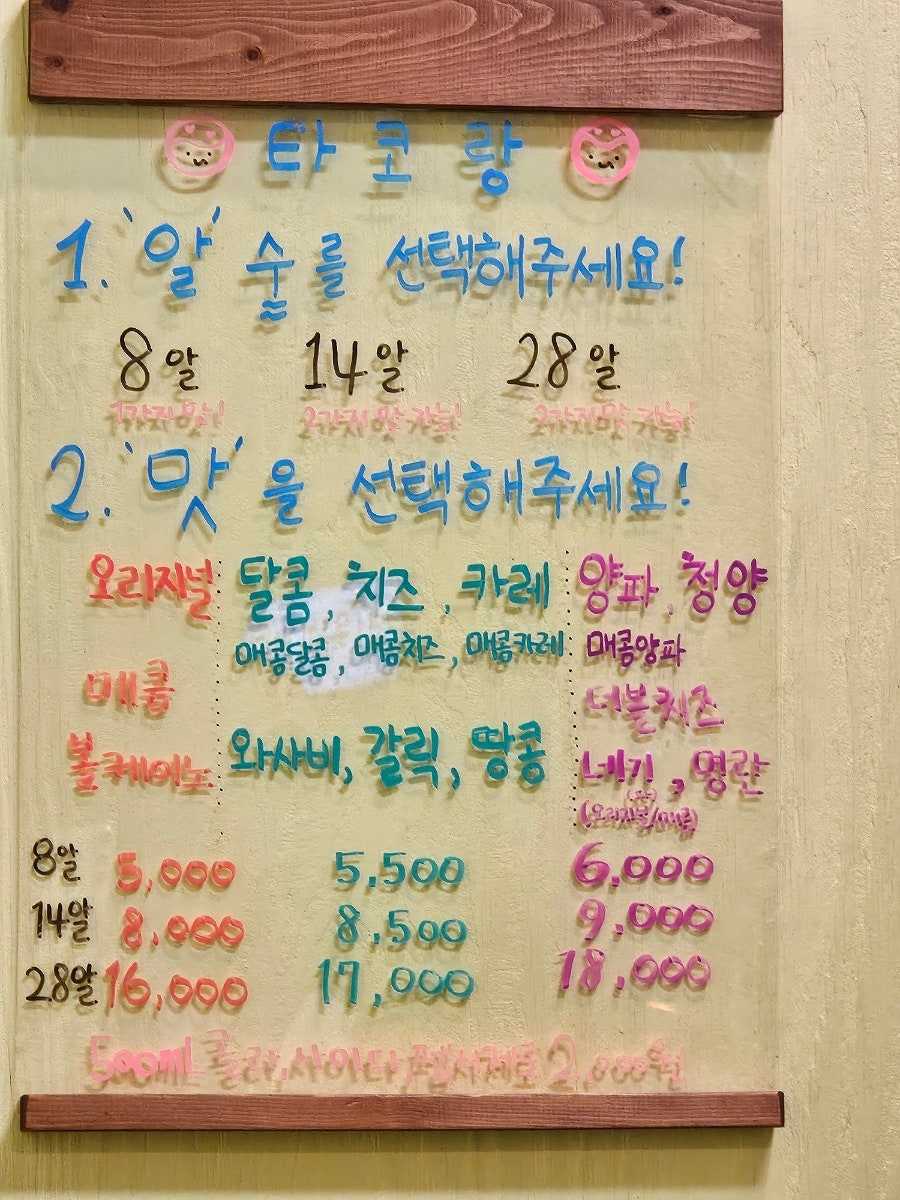 타코랑
1. '알' 수를 선택해주세요!
8알 14알 28알
1가지 맛! 2가지 맛 가능! 2가지 맛 가능!
2. '맛'을 선택해주세요!
오리지널 달콤, 치즈, 카레 양파, 청양
매콤달콤, 매콤치즈, 매콤카레 매콤양파
매콤 더블치즈
볼케이노 와사비, 갈릭, 땅콩 네기, 명란
(파)
(오리지널/매콤)
8알 5,000 5,500 6,000
14알 8,000 8,500 9,000
28알 16,000 17,000 18,000
500mL 콜라, 사이다, 펩시제로 2,000원